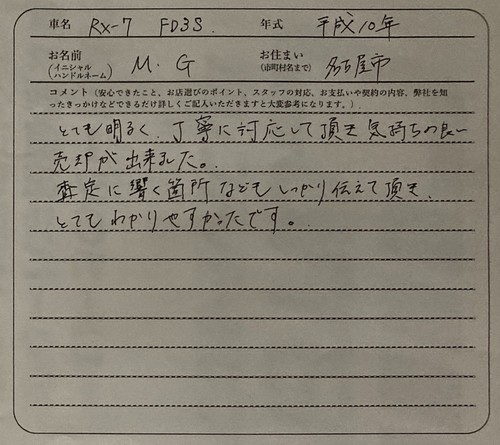 車名 RX-7 FD3S. 年式 平成10年
お名前 (イニシャル ハンドルネーム) M.G お住まい (市町村名まで) 名古屋市
コメント(安心できたこと、お店選びのポイント、スタッフの対応、お支払いや契約の内容、弊社を知
ったきっかけなどできるだけ詳しくご記入いただきますと大変参考になります。)
とても明るく、丁寧に対応して頂き気持ちの良い
売却が出来ました。
査定に響く箇所などもしっかり伝えて頂き、
とてもわかりやすかったです。